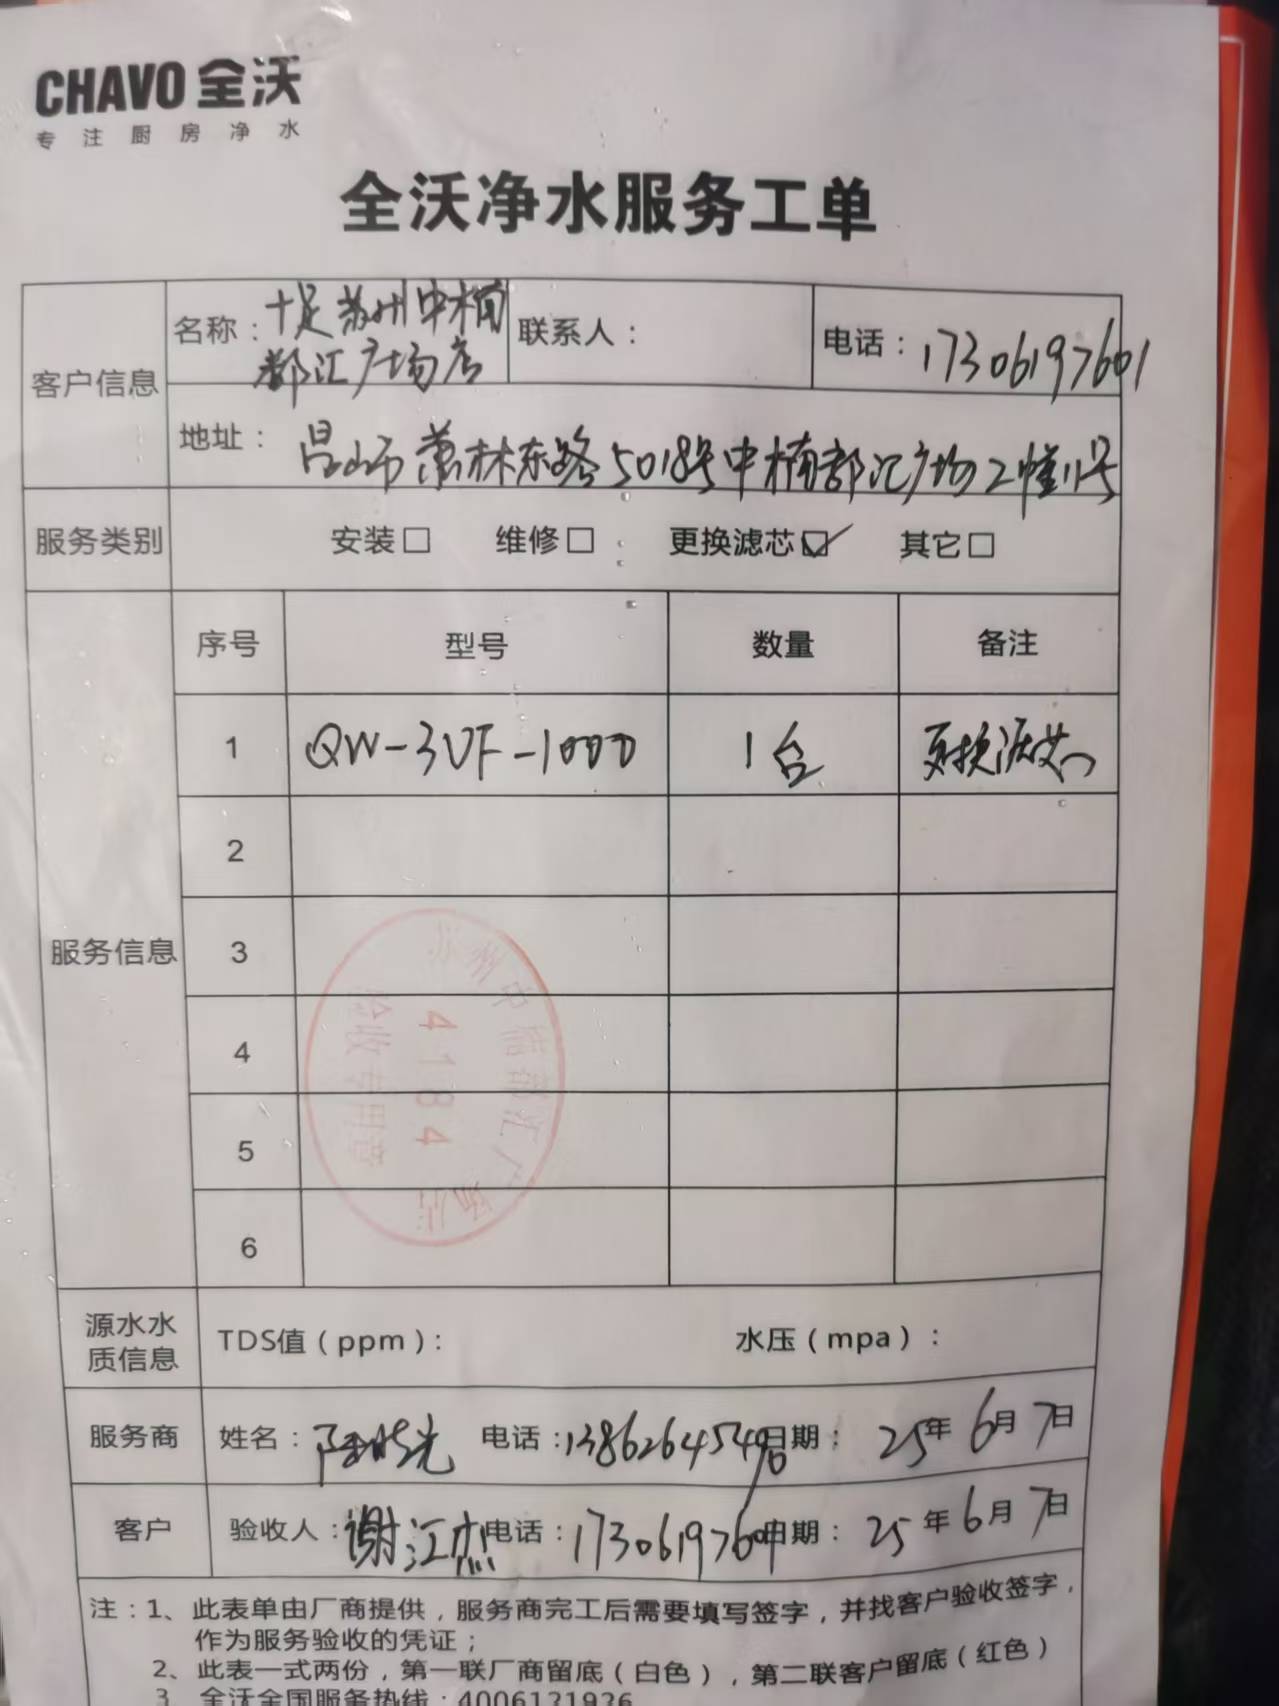 CHAVO 全沃
专注厨房净水
全沃净水服务工单
客户信息
名称：十足苏州中楠
都汇广场店
联系人：
电话：17306197601
地址：昆山市萧林东路5018号中楠都汇广场2幢11号
服务类别 安装□ 维修□ 更换滤芯☑ 其它□
服务信息
序号 型号 数量 备注
1 QW-3UF-1000 1台 更换滤芯
2
3
4
5
6
苏州中楠都汇广场店
4184
验收专用章
源水水
质信息
TDS值（ppm）： 水压（mpa）：
服务商 姓名：陆晓光 电话：13862645496 日期：25年6月7日
客户 验收人：谢江杰 电话：17306197601 日期：25年6月7日
注：1、此表单由厂商提供，服务商完工后需要填写签字，并找客户验收签字，
作为服务验收的凭证；
2、此表一式两份，第一联厂商留底（白色），第二联客户留底（红色）
3、全沃全国服务热线：4006121926